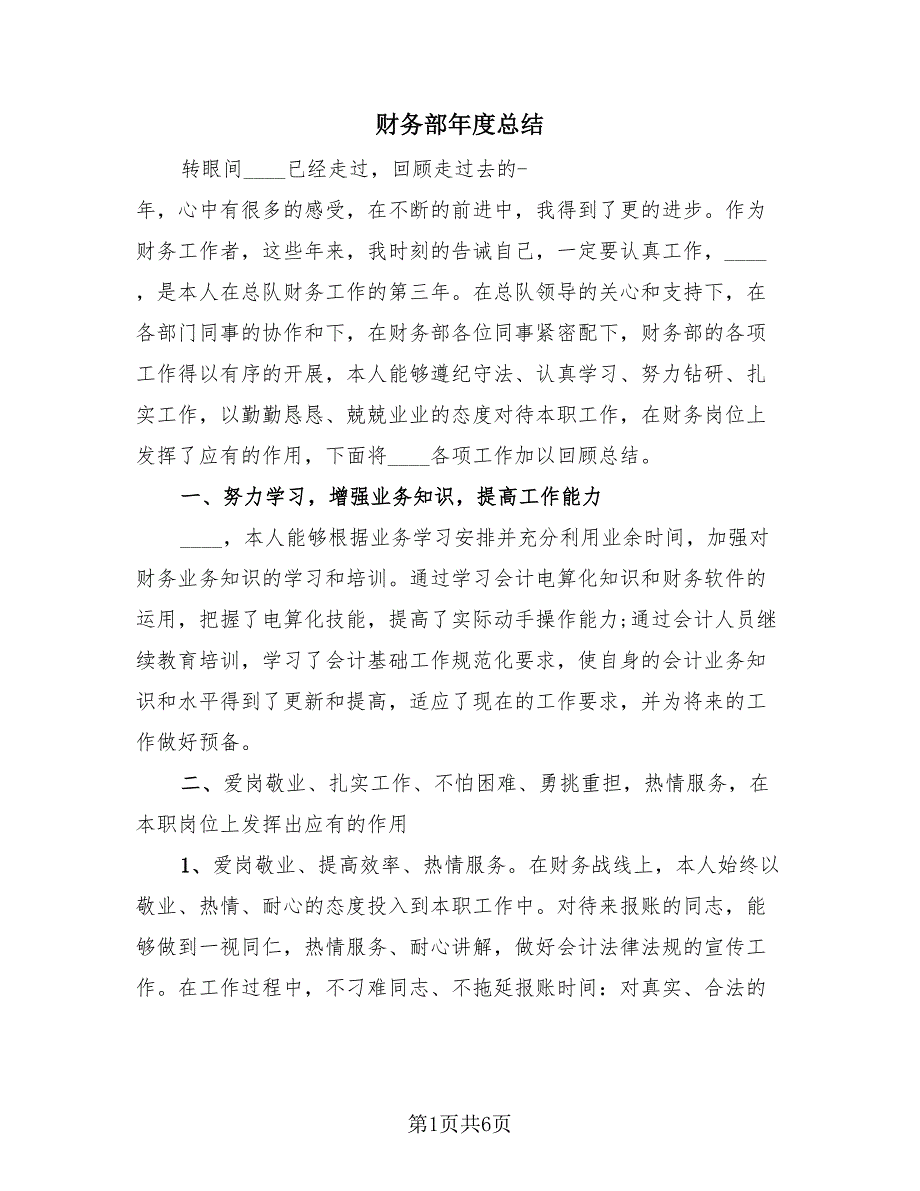 财务部年度总结
转眼间____已经走过，回顾走过去的-
年，心中有很多的感受，在不断的前进中，我得到了更的进步。作为
财务工作者，这些年来，我时刻的告诫自己，一定要认真工作，____
，是本人在总队财务工作的第三年。在总队领导的关心和支持下，在
各部门同事的协作和下，在财务部各位同事紧密配下，财务部的各项
工作得以有序的开展，本人能够遵纪守法、认真学习、努力钻研、扎
实工作，以勤勤恳恳、兢兢业业的态度对待本职工作，在财务岗位上
发挥了应有的作用，下面将____各项工作加以回顾总结。
一、努力学习，增强业务知识，提高工作能力
____，本人能够根据业务学习安排并充分利用业余时间，加强对
财务业务知识的学习和培训。通过学习会计电算化知识和财务软件的
运用，把握了电算化技能，提高了实际动手操作能力;通过会计人员继
续教育培训，学习了会计基础工作规范化要求，使自身的会计业务知
识和水平得到了更新和提高，适应了现在的工作要求，并为将来的工
作做好预备。
二、爱岗敬业、扎实工作、不怕困难、勇挑重担，热情服务，在
本职岗位上发挥出应有的作用
1、爱岗敬业、提高效率、热情服务。在财务战线上，本人始终以
敬业、热情、耐心的态度投入到本职工作中。对待来报账的同志，能
够做到一视同仁，热情服务、耐心讲解，做好会计法律法规的宣传工
作。在工作过程中，不刁难同志、不拖延报账时间：对真实、合法的
第1页共6页